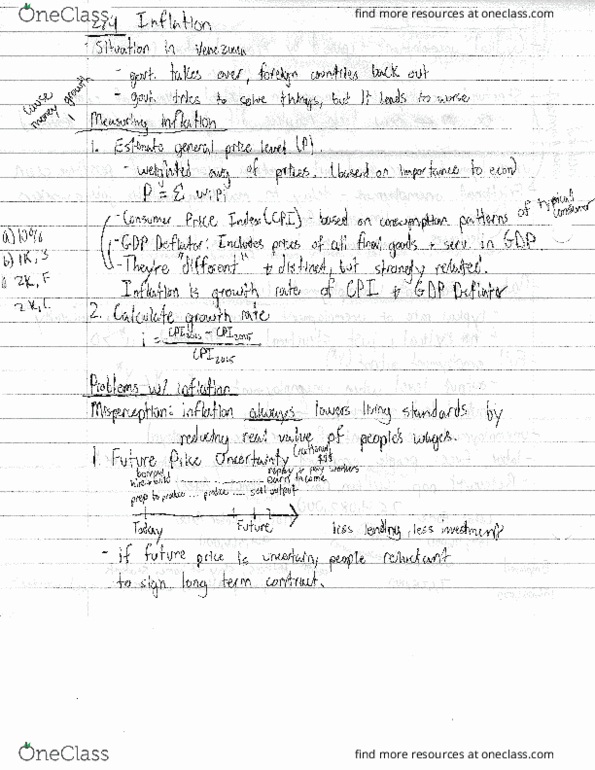 OneClass
find more resources at oneclass.com
2.4 Inflation
Situation in Venezuela
- govt. takes over, foreign countries back out
- govt. tries to solve things, but it leads to worse
cause
money growth
Measuring Inflation
1. Estimate general price level (P)
- weighted avg of prices. (based on importance to econ)
P = Σ wipi
- Consumer Price Index (CPI) - based on consumption patterns of typical consumer
- GDP Deflator: Includes prices of all final goods + serv. in GDP
- They're "different" + distinct, but strongly related.
Inflation is growth rate of CPI + GDP Deflator
a) 10%
b) 1K, S
2K, F
2K, C
2. Calculate growth rate
i = CPI - CPI 2015
CPI 2015
Problems w/ inflation
Misperception: inflation always lowers living standards by
reducing real value of people's wages.
1. Future Price Uncertainty
borrow repay + pay workers
hire + build earn income
prep to produce ... produce ... sell output
Today Future less lending, less investment?
- if future price is uncertain, people reluctant
to sign long term contract.
OneClass
find more resources at oneclass.com